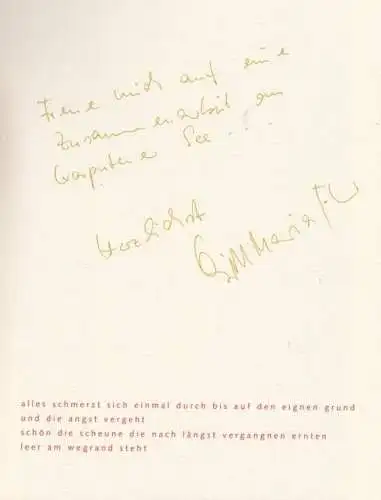 Freue mich auf eine
Zusammenarbeit am
See...
Herzlichst
alles schmerzt sich einmal durch bis auf den eignen grund
und die angst vergeht
schön die scheune die nach längst vergangnen ernten
leer am wegrand steht